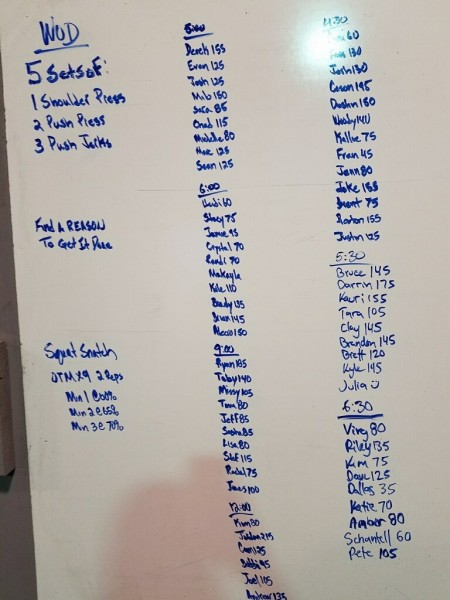 WOD
5 Sets of:
1 Shoulder Press
2 Push Press
3 Push Jerks
Find A REASON
To Get It Done
Squat Snatch
OTM X9 2 Reps
Min 1 @ 60%
Min 2 @ 65%
Min 3 @ 70%
5:00
Derek 155
Evan 125
Josh 125
Mib 150
Sara 85
Chad 115
Michelle 80
125
Sean 125
6:00
Heidi 60
Stacy 75
Jamie 95
Crystal 70
Randi 70
Makayla
Kyle 110
Brady 135
Brian 145
Alecio 150
9:00
Ryan 135
Toby 140
Missy 105
Tana 80
Jeff 85
Sasha 85
Lisa 80
Stef 115
Rachel 75
James 100
12:00
Kim 80
Jordan 215
Cam 125
Bobbi 95
Joel 105
Andrew 135
4:30
60
130
Josh 130
Carson 195
Dustin 150
Woody 140
Kallie 75
Fran 45
Jenn 80
Jake 155
Brent 75
Aaron 155
Justin 125
5:30
Bruce 145
Darrin 175
Kauri 155
Tara 105
Clay 145
Brandon 145
Brett 120
Kyle 145
Julia
6:30
Viry 80
Riley 135
Kim 75
Dave 125
Dallas 35
Katie 70
Amber 80
Schantell 60
Pete 105